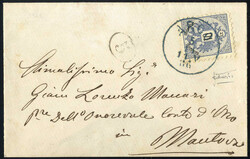 10
Stimatissimo Sig.
Gian Lorenzo Maccari
pre Dell'Onorevole Conte d'Arco
in
Mantova